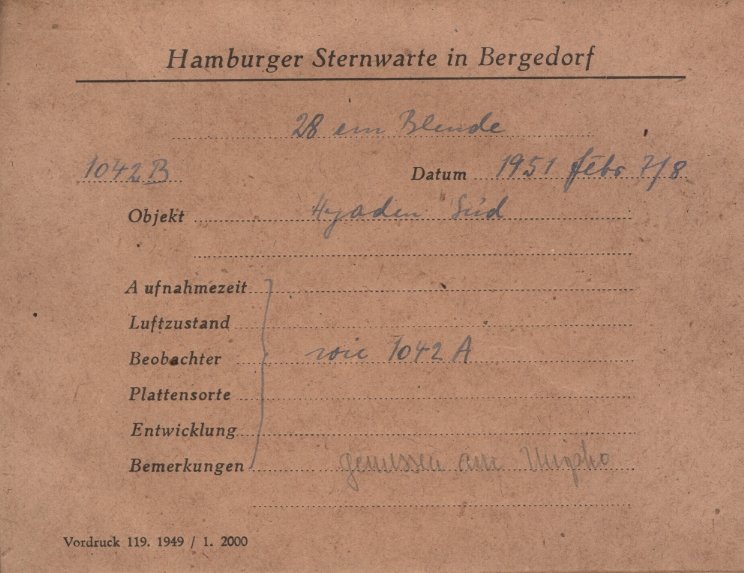 Hamburger Sternwarte in Bergedorf
28 cm Blende
1042 B Datum 1951 Febr 7/8
Objekt Hyaden Süd
Aufnahmezeit
Luftzustand
Beobachter wie 1042 A
Plattensorte
Entwicklung
Bemerkungen gemessen am
Vordruck 119. 1949 / 1. 2000